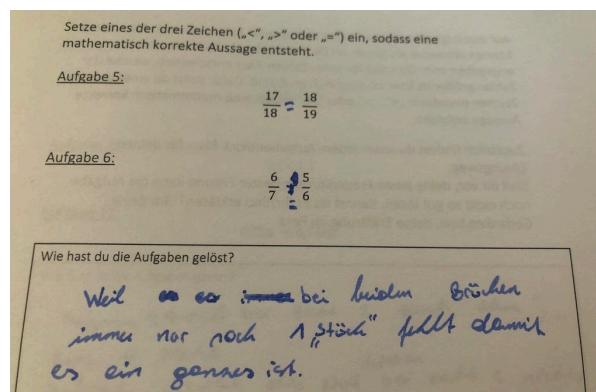 Setze eines der drei Zeichen („<“, „>“ oder „=“) ein, sodass eine
mathematisch korrekte Aussage entsteht.
Aufgabe 5:
17/18 = 18/19
Aufgabe 6:
6/7 = 5/6
Wie hast du die Aufgaben gelöst?
Weil bei beiden Brüchen
immer nor noch 1 „Stück“ fehlt damit
es ein ganzes ist.